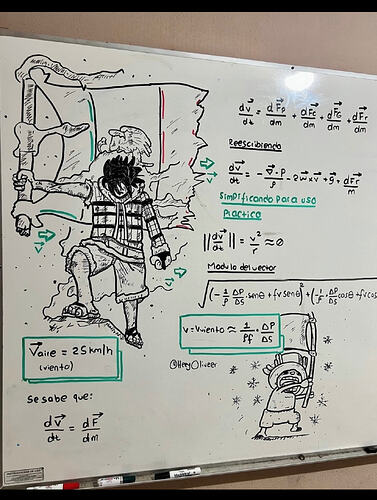 dv⃗/dt = dF⃗p/dm + dF⃗c/dm + dF⃗G/dm + dF⃗r/dm
Reescribiendo
dv⃗/dt = - ∇⃗·P/ρ - 2w⃗×v⃗ + g⃗ + dF⃗r/m
Simplificando para uso
Practico
||dv⃗/dt|| = v²/r ≈ 0
Modulo del vector
√(-1/ρ · ΔP/ΔS · senθ + fv senθ)² + (-1/ρ · ΔP/ΔS cosθ + fv cos
v = Vviento ≈ 1/ρf · ΔP/ΔS
@HeyOliveer
v⃗
v⃗
v⃗
V⃗aire = 25 km/h
(viento)
Se sabe que:
dv⃗/dt = dF⃗/dm